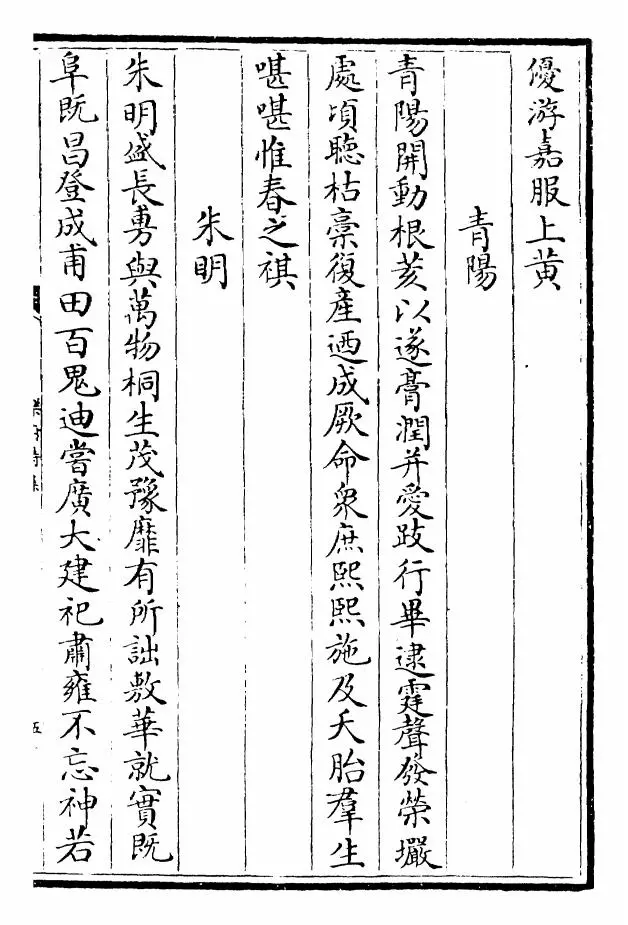 優游嘉服上黄
青陽
青陽開動根荄以遂膏潤并愛跂行畢逮霆聲發榮壧
處頃聽枯槀復産迺成厥命衆庶熙熙施及夭胎羣生
啿啿惟春之祺
朱明
朱明盛長旉與萬物桐生茂豫靡有所詘敷華就實既
阜既昌登成甫田百鬼迪嘗廣大建祀肅雍不忘神若
樂府詩集
五